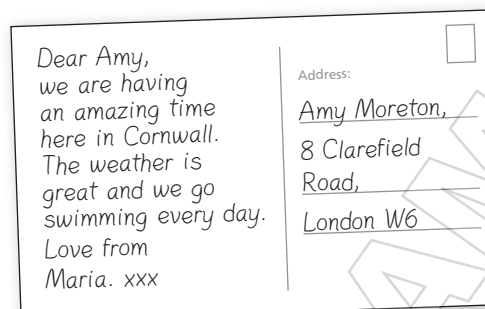 Dear Amy,
we are having
an amazing time
here in Cornwall.
The weather is
great and we go
swimming every day.
Love from
Maria. xxx
Address:
Amy Moreton,
8 Clarefield
Road,
London W6